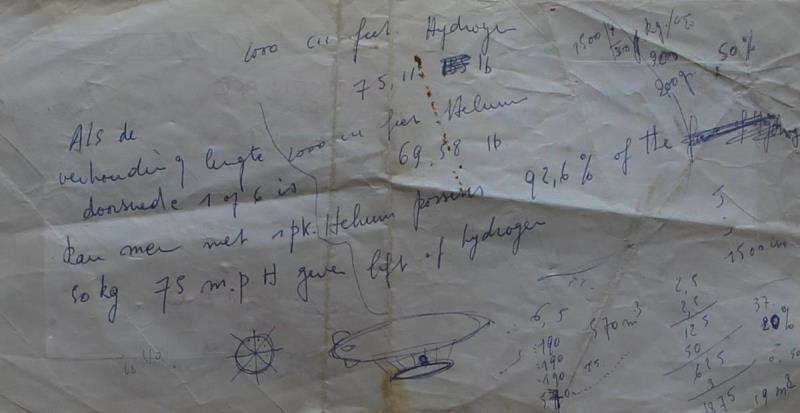 1000 cu feet. Hydrogen
75,11 lb
1000 cu feet Helium
69,58 lb
Helium possess 92,6% of the
lift of hydrogen
Als de
verhouding lengte
doorsnede 1 op 6 is
kan men met 1 pk.
50 kg 75 m.p H geven
1500
kg/
9000
200gr.
50%
6,5
:190
:190
:190
570
570 m³
75
2,5
2,5
125
50
625
3
1875
1500 cm
37
20%
19 m²